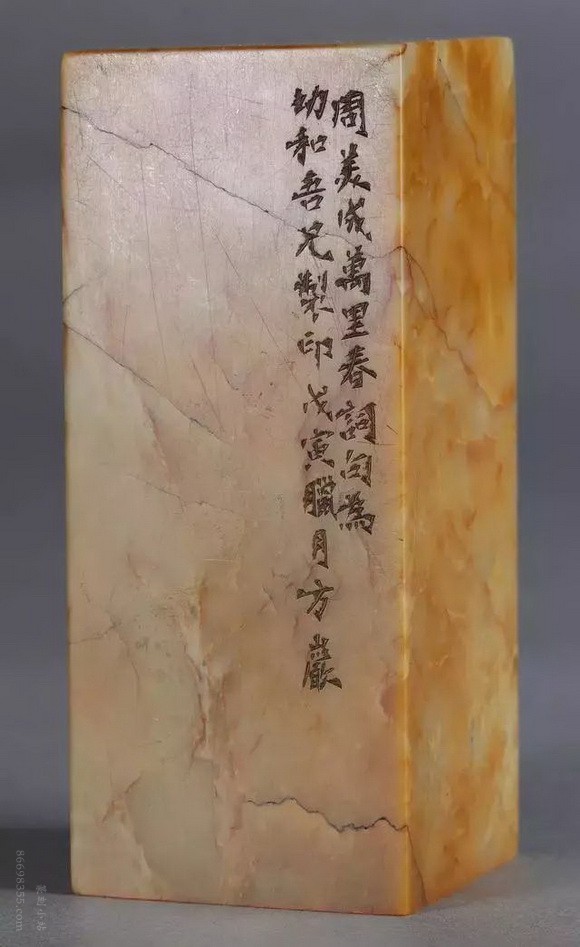 周美成萬里春詞句為
幼和吾兄製印戊寅臘月方巖
86698355.com